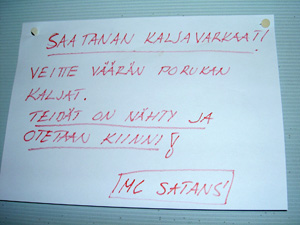 SAATANAN KALJAVARKAAT!
VEITTE VÄÄRÄN PORUKAN
KALJAT.
TEIDÄT ON NÄHTY JA
OTETAAN KIINNI!
MC SATANS!